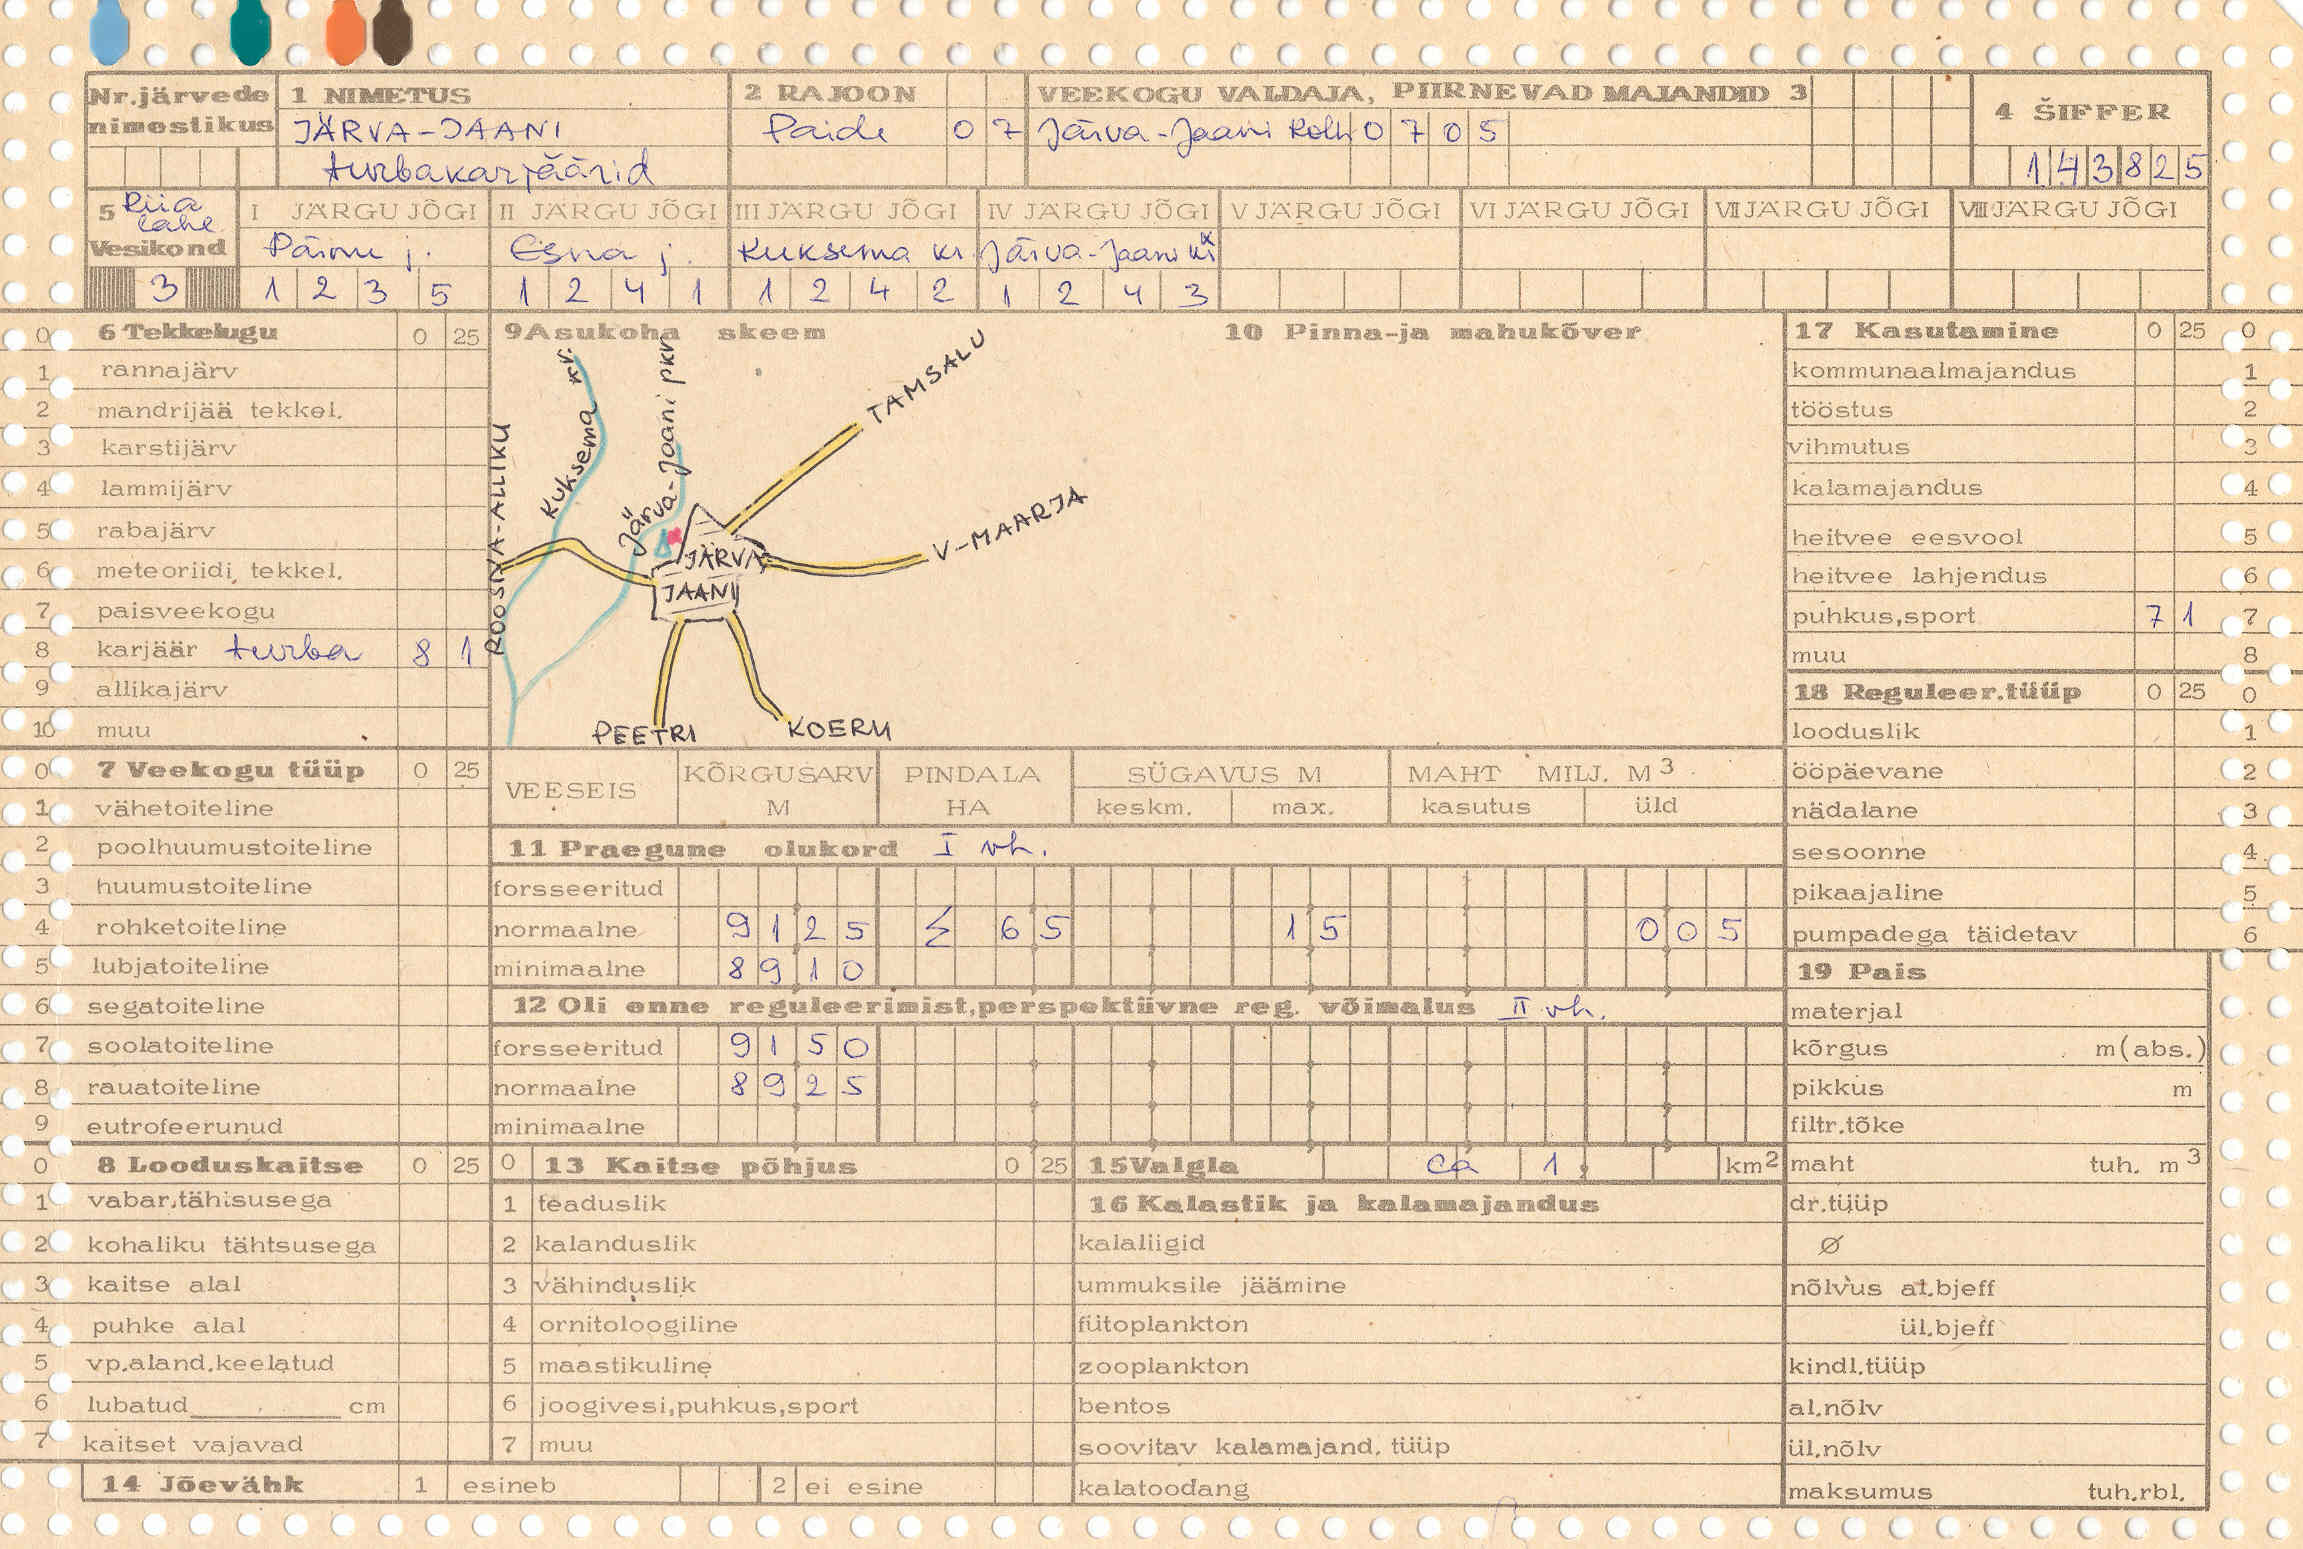 Nr.järvede nimestikus
1 NIMETUS
JÄRVA-JAANI
turbakarjäärid
2 RAJOON
Paide 0 7
VEEKOGU VALDAJA, PIIRNEVAD MAJANDID 3
Järva-Jaani Kolh 0 7 0 5
4 ŠIFFER
1 4 3 8 2 5
5 Riia lahe
Vesikond
3
I JÄRGU JÕGI
Pärnu j.
1 2 3 5
II JÄRGU JÕGI
Esna j.
1 2 4 1
III JÄRGU JÕGI
Kuksema kr.
1 2 4 2
IV JÄRGU JÕGI
Järva-Jaani kr
1 2 4 3
V JÄRGU JÕGI
VI JÄRGU JÕGI
VII JÄRGU JÕGI
VIII JÄRGU JÕGI
0 6 Tekkelugu 0 25
1 rannajärv
2 mandrijää tekkel.
3 karstijärv
4 lammijärv
5 rabajärv
6 meteoriidi tekkel.
7 paisveekogu
8 karjäär turba 8 1
9 allikajärv
10 muu
9 Asukoha skeem
10 Pinna-ja mahukõver
Kuksema kr.
Järva-Jaani pkr
TAMSALU
V-MAARJA
ROOSNA-ALLIKU
JÄRVA
JAANI
PEETRI
KOERU
0 7 Veekogu tüüp 0 25
1 vähetoiteline
2 poolhuumustoiteline
3 huumustoiteline
4 rohketoiteline
5 lubjatoiteline
6 segatoiteline
7 soolatoiteline
8 rauatoiteline
9 eutrofeerunud
VEESEIS
KÕRGUSARV M
PINDALA HA
SÜGAVUS M
keskm. max.
MAHT MILJ. M3
kasutus üld
11 Praegune olukord I vh.
forsseeritud
normaalne 9 1 2 5 Σ 6 5 1 5 0 0 5
minimaalne 8 9 1 0
12 Oli enne reguleerimist,perspektiivne reg. võimalus II vh.
forsseeritud 9 1 5 0
normaalne 8 9 2 5
minimaalne
0 8 Looduskaitse 0 25
1 vabar.tähisusega
2 kohaliku tähtsusega
3 kaitse alal
4 puhke alal
5 vp.aland.keelatud
6 lubatud cm
7 kaitset vajavad
0 13 Kaitse põhjus 0 25
1 teaduslik
2 kalanduslik
3 vähinduslik
4 ornitoloogiline
5 maastikuline
6 joogivesi,puhkus,sport
7 muu
14 Jõevähk 1 esineb 2 ei esine
15 Valgla ca 1, km2
16 Kalastik ja kalamajandus
kalaliigid
ummuksile jäämine
fütoplankton
zooplankton
bentos
soovitav kalamajand. tüüp
kalatoodang
17 Kasutamine 0 25 0
kommunaalmajandus 1
tööstus 2
vihmutus 3
kalamajandus 4
heitvee eesvool 5
heitvee lahjendus 6
puhkus,sport 7 1 7
muu 8
18 Reguleer.tüüp 0 25 0
looduslik 1
ööpäevane 2
nädalane 3
sesoonne 4
pikaajaline 5
pumpadega täidetav 6
19 Pais
materjal
kõrgus m(abs.)
pikkus m
filtr.tõke
maht tuh. m3
dr.tüüp
Ø
nõlvus al.bjeff
ül.bjeff
kindl.tüüp
al.nõlv
ül.nõlv
maksumus tuh.rbl.